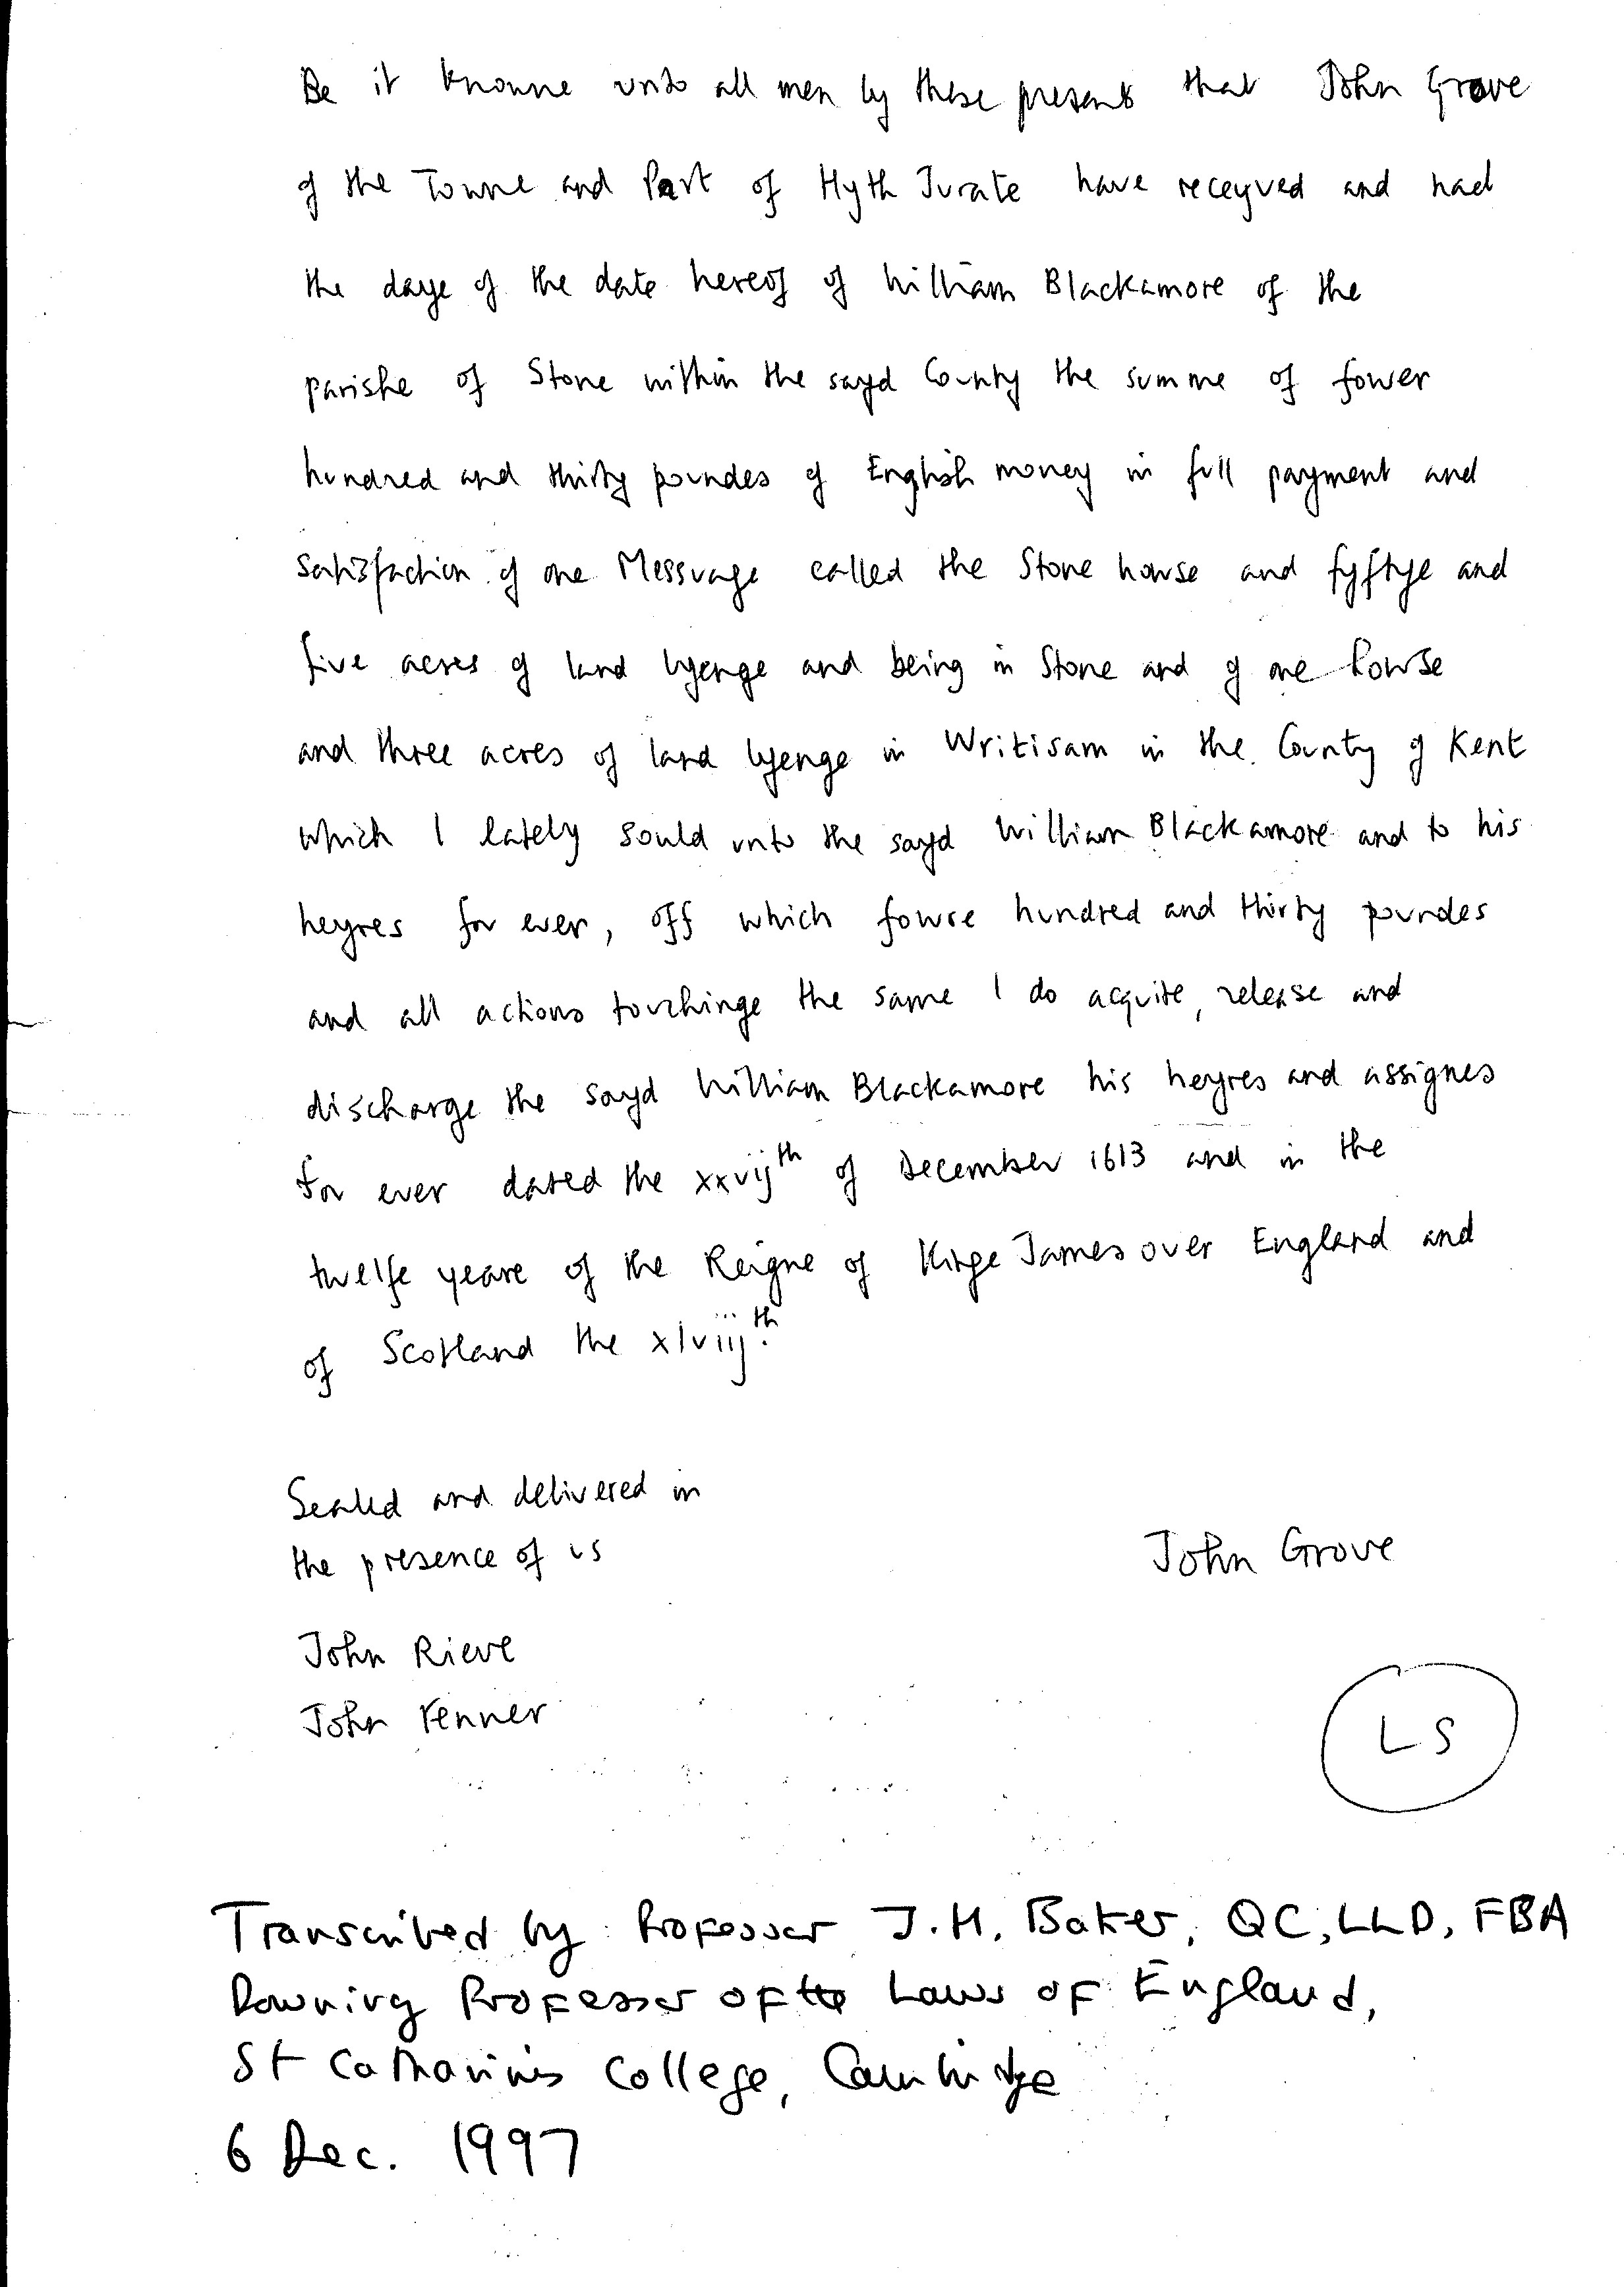 Be it knowne unto all men by these presents that John Grove
of the Towne and Port of Hyth Jurate have receyved and had
the daye of the date hereof of William Blackamore of the
parishe of Stone within the sayd County the summe of fower
hundred and thirty poundes of English money in full payment and
satisfaction of one Messuage called the Stone howse and fyftye and
five acres of land lyenge and being in Stone and of one howse
and three acres of land lyenge in Writisam in the County of Kent
which I lately sould unto the sayd William Blackamore and to his
heyres for ever, off which fowre hundred and thirty poundes
and all actions touchinge the same I do acquite, release and
discharge the sayd William Blackamore his heyres and assignes
for ever dated the xxvijth of December 1613 and in the
twelfe yeare of the Reigne of Kinge James over England and
of Scotland the xlviijth.
Sealed and delivered in
the presence of us
John Grove
John Rieve
John Fenner
LS
Transcribed by Professor J.H. Baker, QC, LLD, FBA
Downing Professor of the Laws of England,
St Catharine's College, Cambridge
6 Dec. 1997